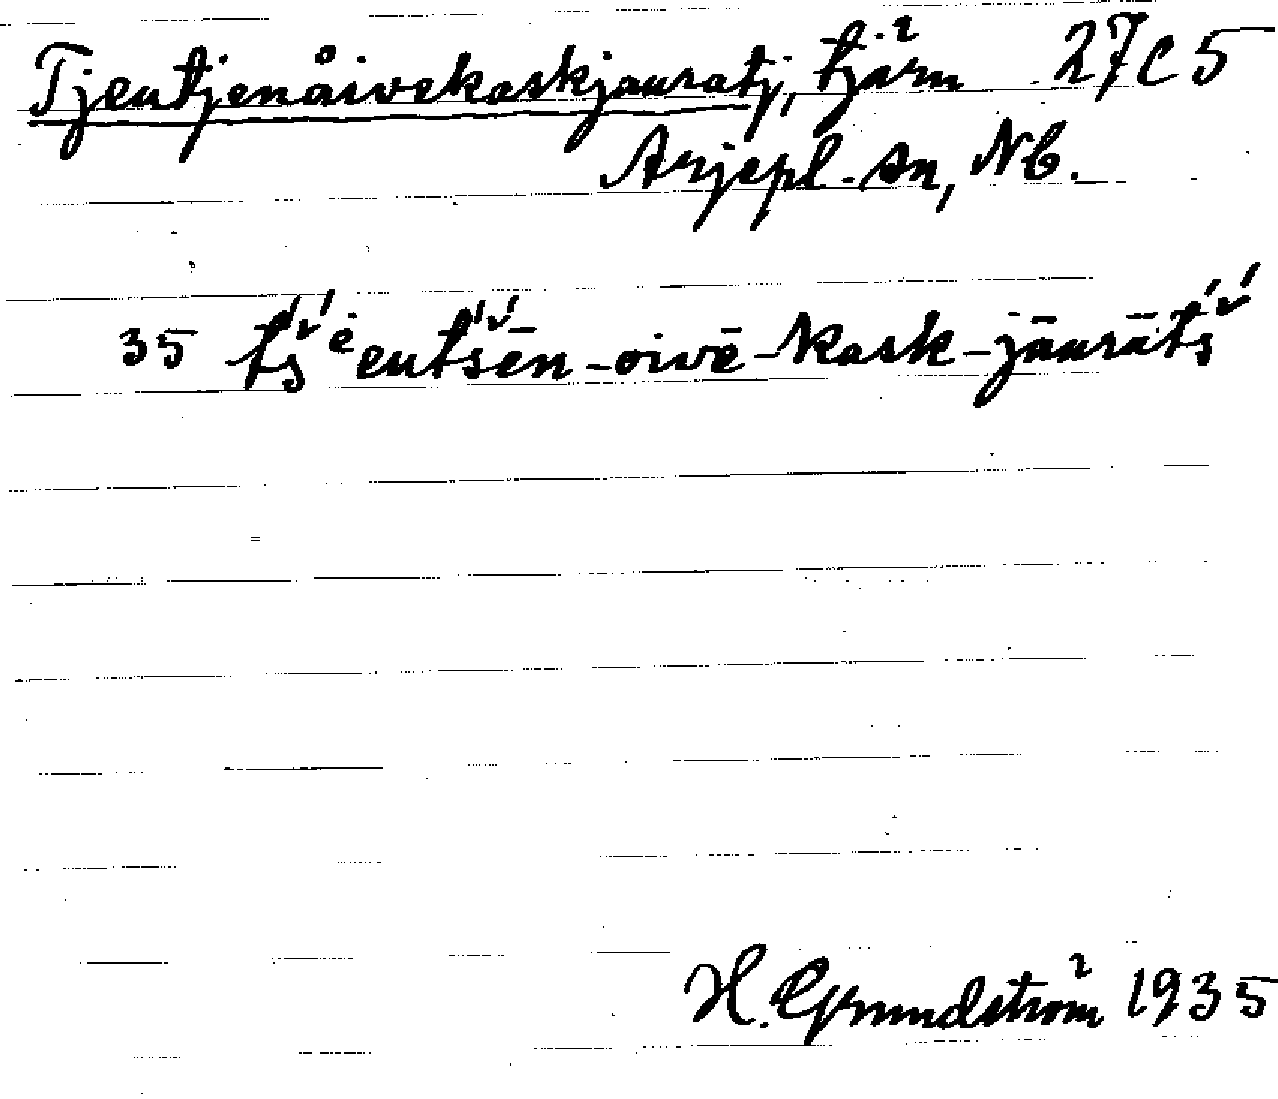 Tjeutjenåivekaskjauratj, tjärn 27C5
Arjepl. sn, Nb.
35 tś̌ėeutś̌ēn-oivē-kask-jāurātś̌
H. Grundström 1935